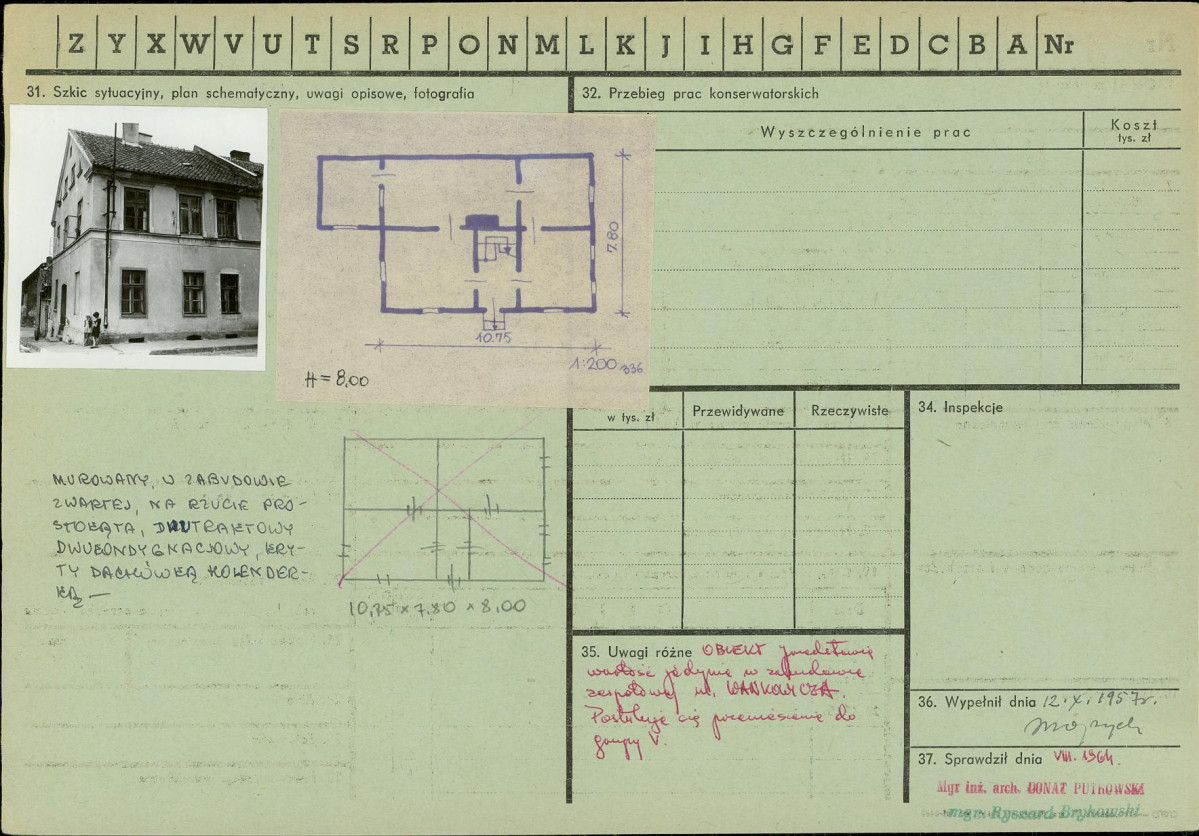 Z Y X W V U T S R P O N M L K J I H G F E D C B A Nr
31. Szkic sytuacyjny, plan schematyczny, uwagi opisowe, fotografia
32. Przebieg prac konserwatorskich
Wyszczególnienie prac
Koszt
tys. zł
7.80
10.75
1:200
336
H = 8,00
w tys. zł
Przewidywane
Rzeczywiste
34. Inspekcje
MUROWANY, W ZABUDOWIE
ZWARTEJ, NA RZUCIE PRO-
STOKĄTA, DWUTRAKTOWY
DWUKONDYGNACJOWY, KRY-
TY DACHÓWKĄ HOLENDER-
KĄ —
10,75 × 7.80 × 8,00
35. Uwagi różne OBIEKT przedstawia
wartość jedynie w zabudowie
zespołowej ul. WAŃKOWICZA.
Postuluje się przeniesienie do
grupy V.
36. Wypełnił dnia 12.X.1957r.
37. Sprawdził dnia VIII. 1964.
Mgr inż. arch. DONAT PUTKOWSKI
mgr Ryszard Brykowski